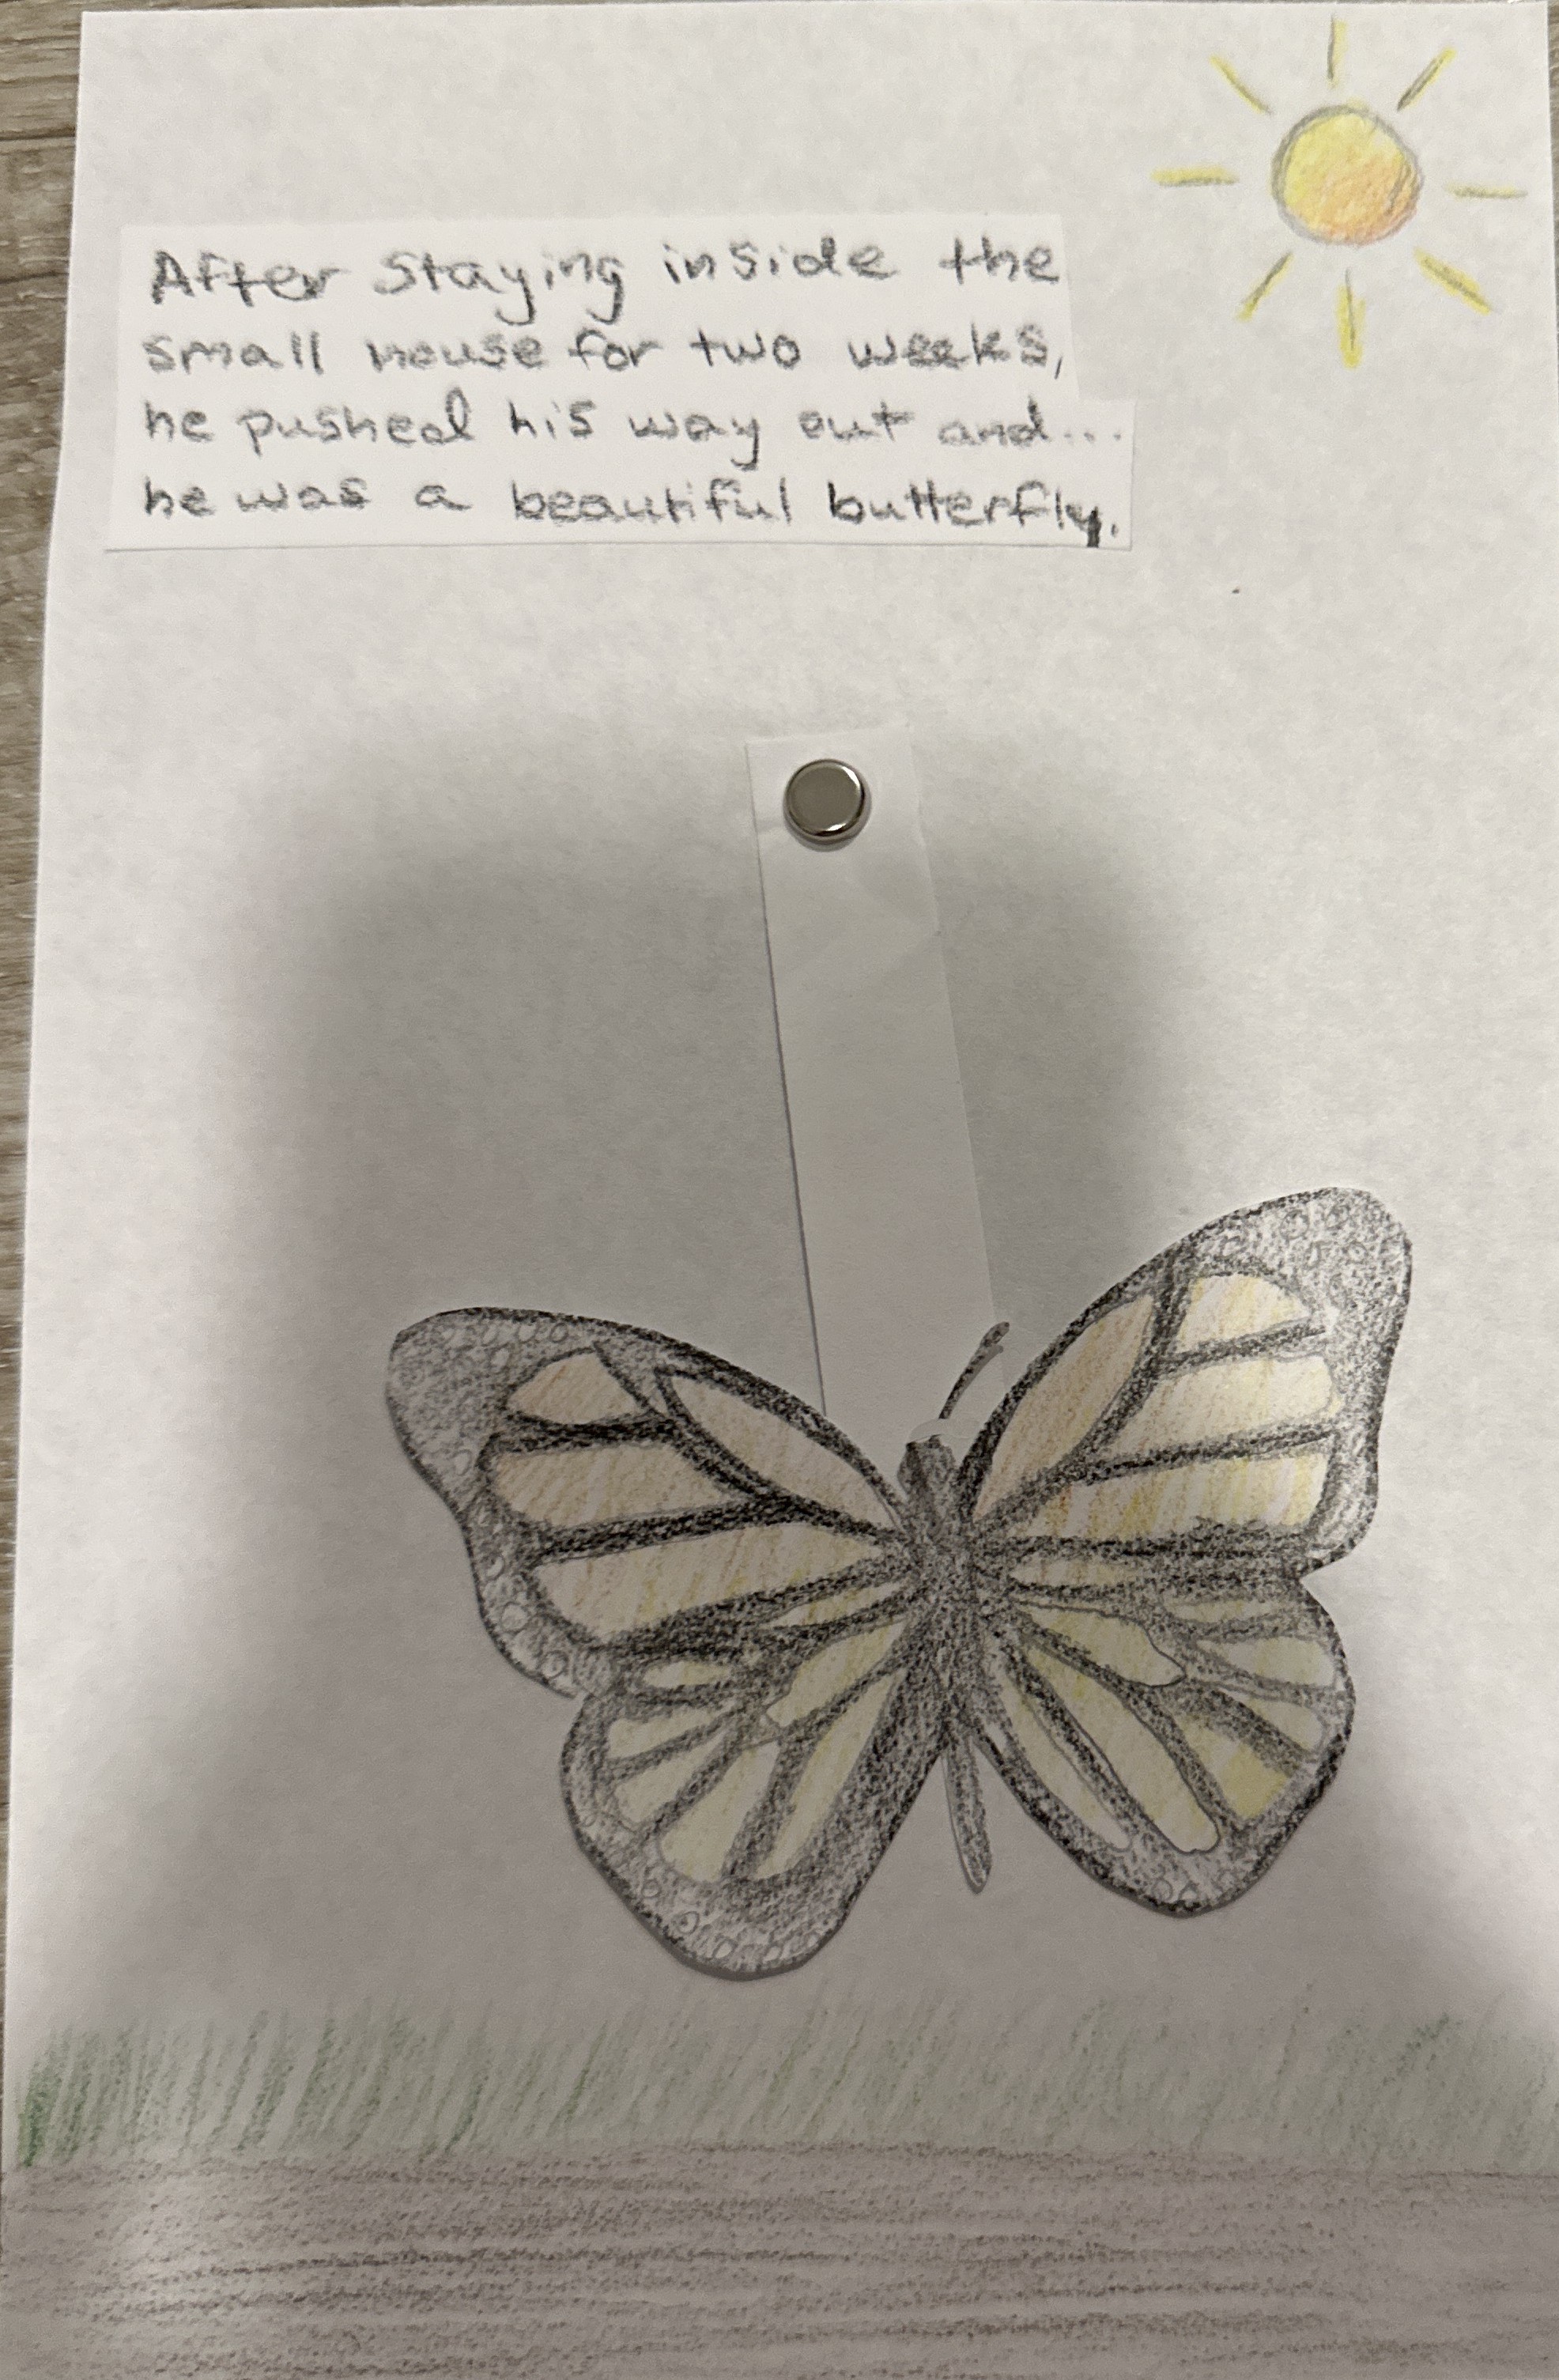 After Staying inside the
small house for two weeks,
he pushed his way out and...
he was a beautiful butterfly.